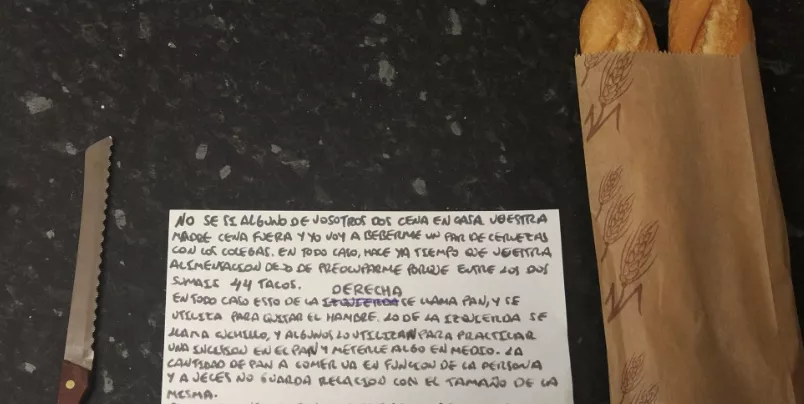 NO SE SI ALGUNO DE VOSOTROS DOS CENA EN CASA. VUESTRA
MADRE CENA FUERA Y YO VOY A BEBERME UN PAR DE CERVEZAS
CON LOS COLEGAS. EN TODO CASO, HACE YA TIEMPO QUE VUESTRA
ALIMENTACION DEJO DE PREOCUPARME PORQUE ENTRE LOS DOS
SUMAIS 44 TACOS.
DERECHA
EN TODO CASO ESTO DE LA IZQUIERDA SE LLAMA PAN, Y SE
UTILIZA PARA QUITAR EL HAMBRE. LO DE LA IZQUIERDA SE
LLAMA CUCHILLO, Y ALGUNOS LO UTILIZAN PARA PRACTICAR
UNA INCISION EN EL PAN Y METERLE ALGO EN MEDIO. LA
CANTIDAD DE PAN A COMER VA EN FUNCION DE LA PERSONA
Y A VECES NO GUARDA RELACION CON EL TAMAÑO DE LA
MISMA.